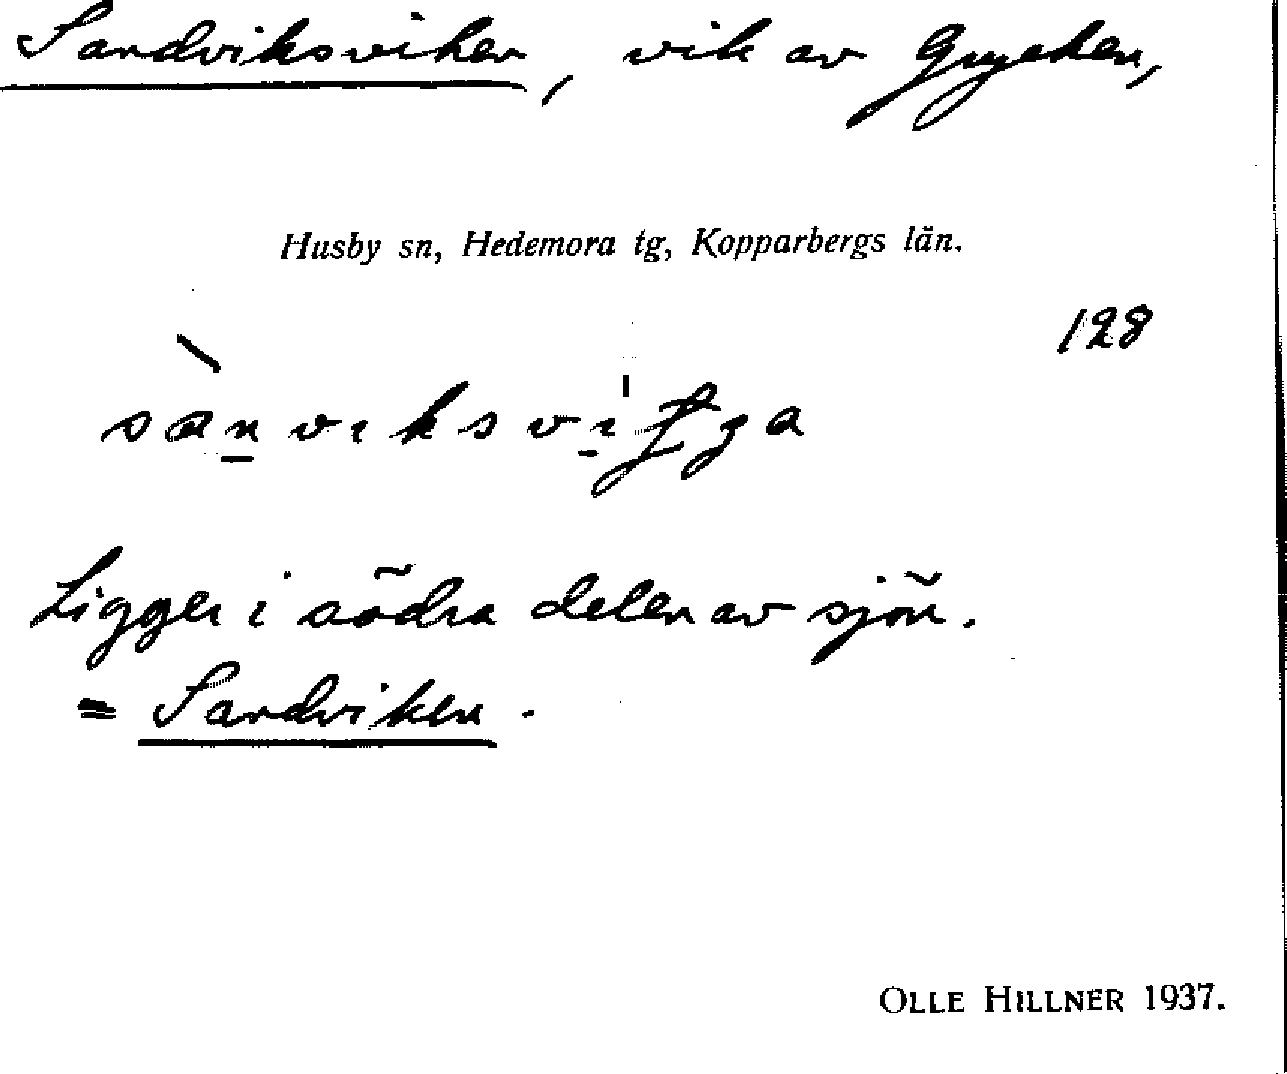 Sandviksviken, vik av Grycken,
Husby sn, Hedemora tg, Kopparbergs län.
128
Ligger i södra delen av sjön.
= Sandviken.
OLLE HILLNER 1937.